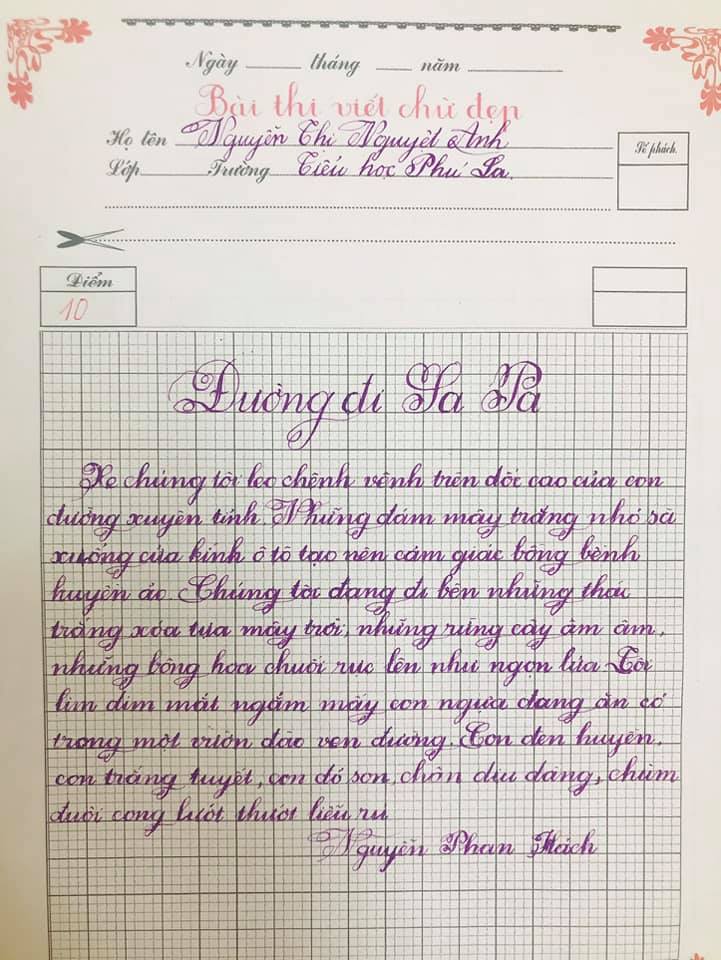 Ngày ____ tháng ____ năm ____
Bài thi viết chữ đẹp
Họ tên Nguyễn Thị Nguyệt Anh
Lớp ____ Trường Tiểu học Phú Sa.
Số phách
Điểm
10
Đường đi Sa Pa
Xe chúng tôi leo chênh vênh trên dốc cao của con
đường xuyên tỉnh. Những đám mây trắng nhỏ sà
xuống cửa kính ô tô tạo nên cảm giác bồng bềnh
huyền ảo. Chúng tôi đang đi bên những thác
trắng xóa tựa mây trời, những rừng cây âm âm,
những bông hoa chuối rực lên như ngọn lửa. Tôi
lim dim mắt ngắm mấy con ngựa đang ăn cỏ
trong một vườn đào ven đường. Con đen huyền,
con trắng tuyết, con đỏ son, chân dịu dàng, chùm
đuôi cong lướt thướt liễu rủ
Nguyễn Phan Hách